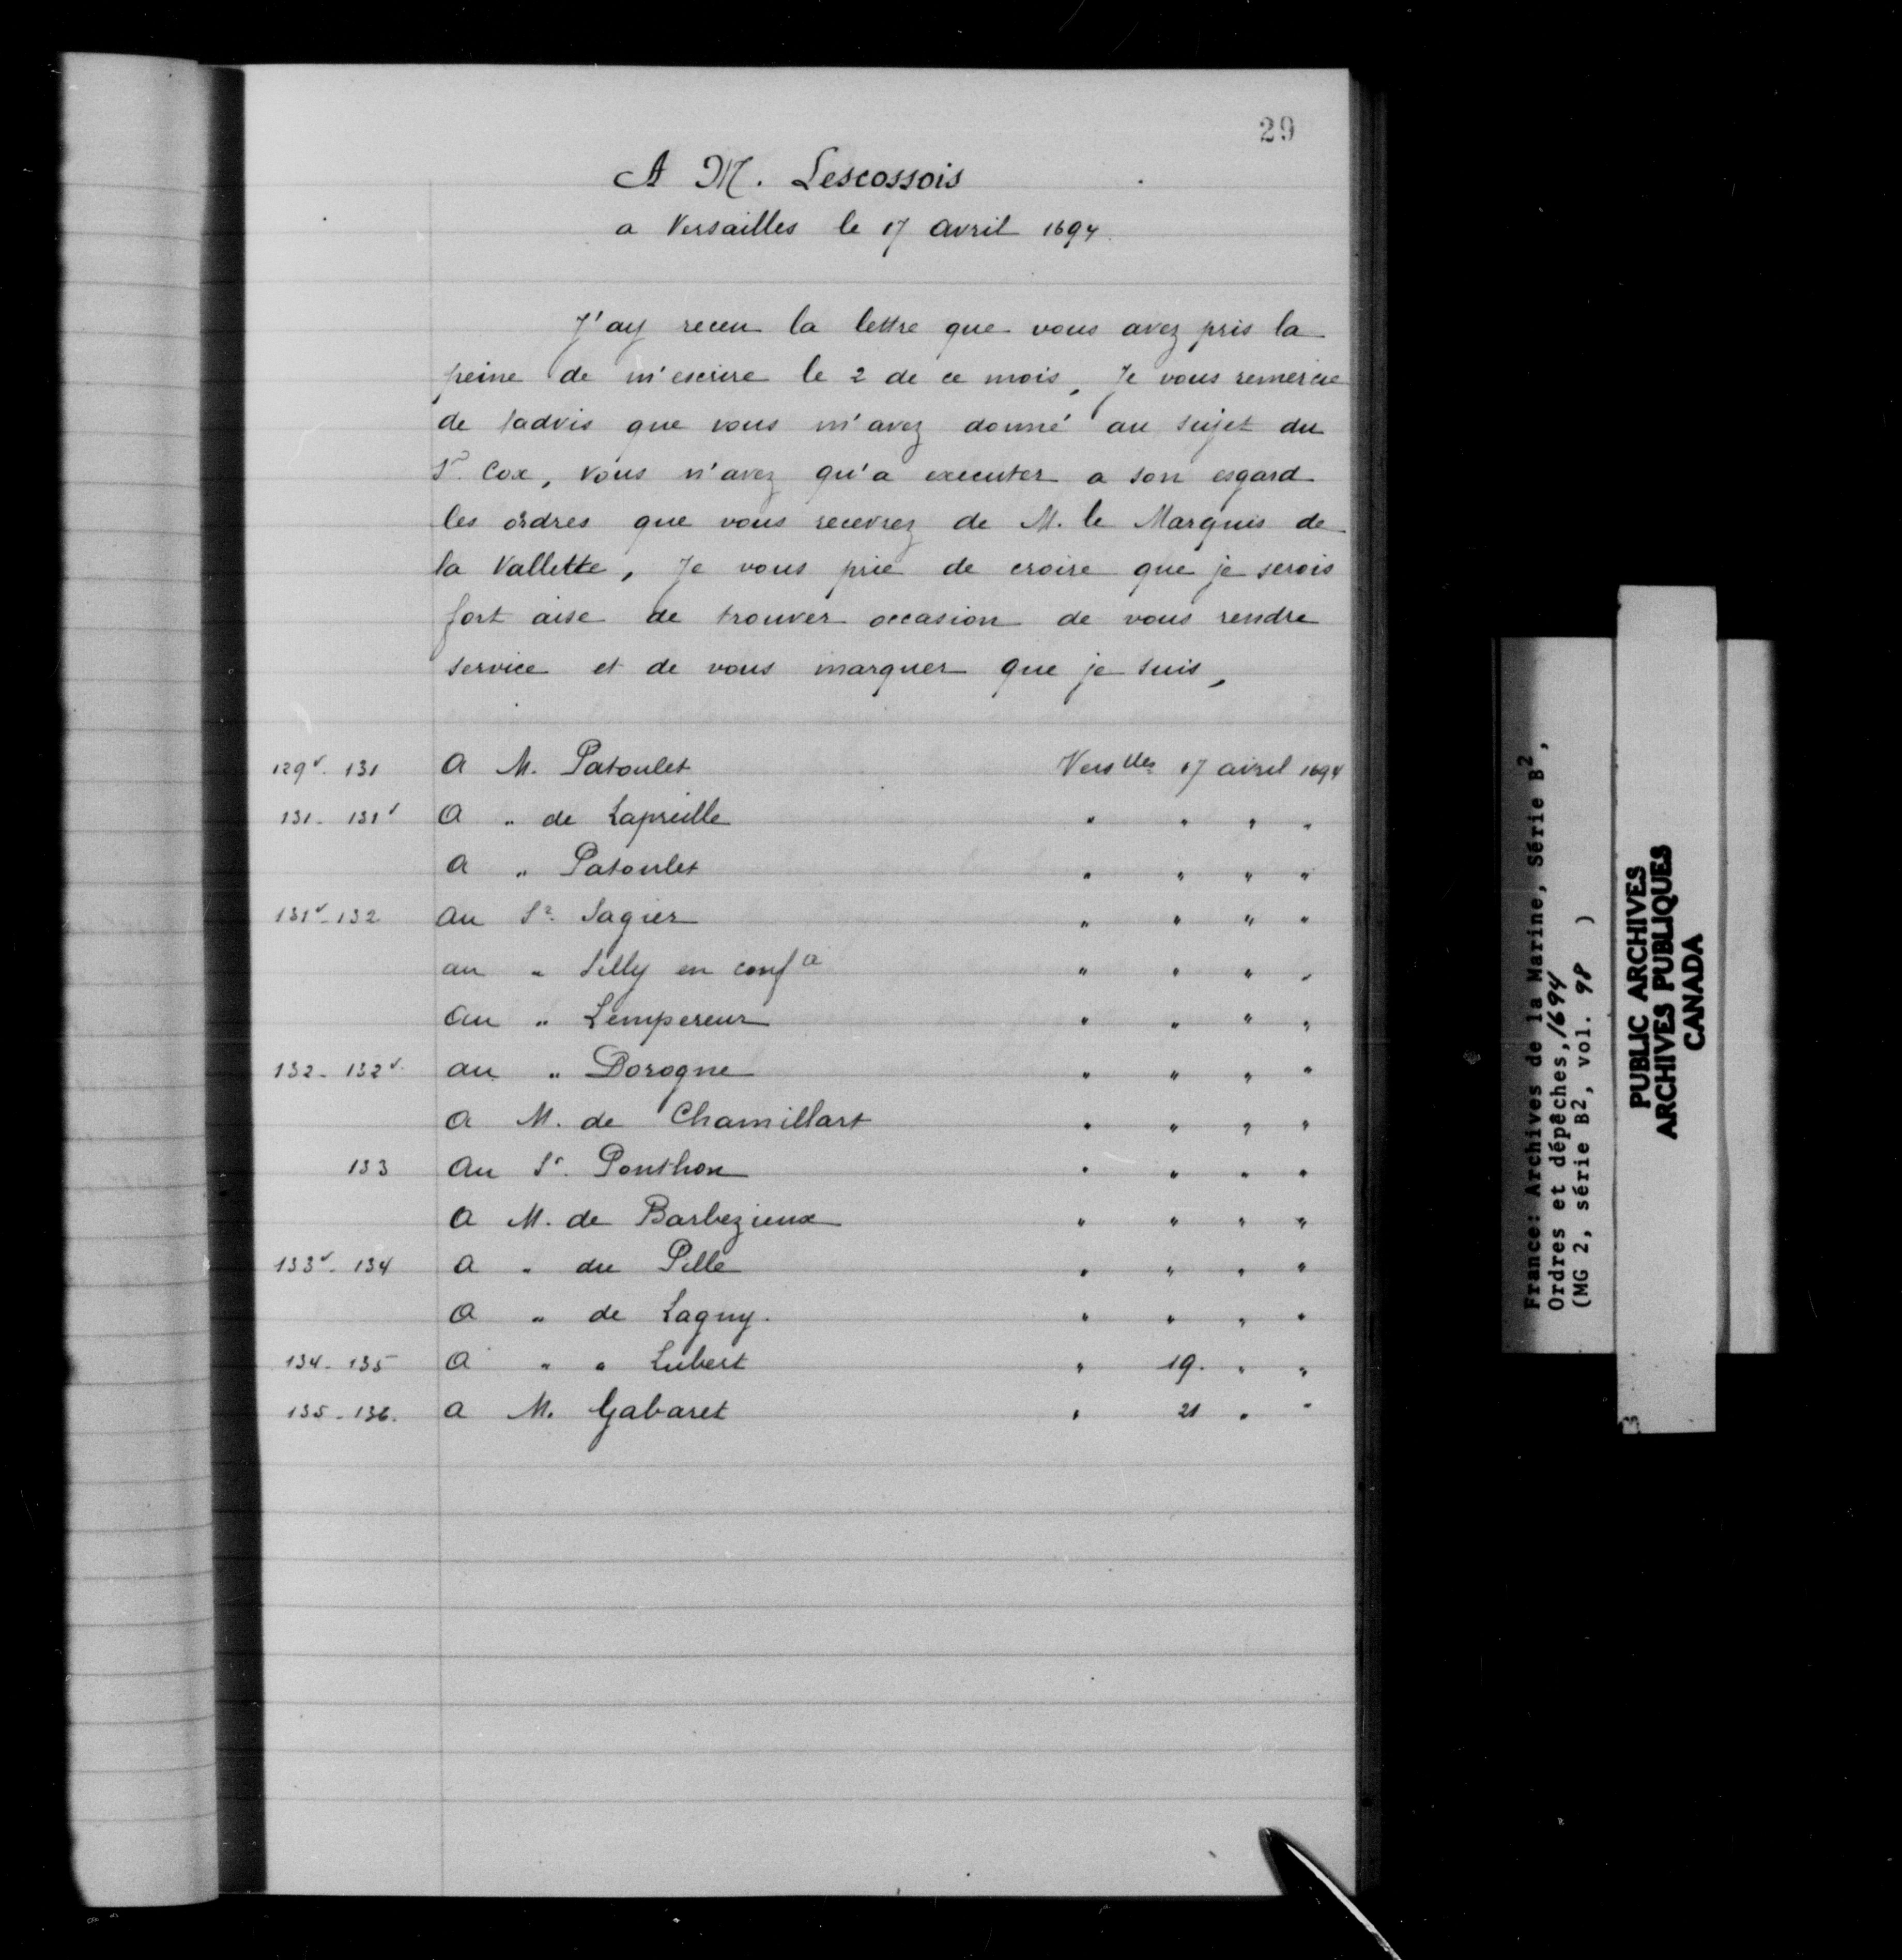 29
A M. Lescossois
a Versailles le 17 avril 1694.
J'ay receu la lettre que vous avez pris la
peine de m'escrire le 2 de ce mois, Je vous remercie
de l'advis que vous m'avez donné au sujet du
Sr. Cox, vous n'avez qu'a executer a son esgard
les ordres que vous recevrez de M. le Marquis de
la Vallette, Je vous prie de croire que je serois
fort aise de trouver occasion de vous rendre
service et de vous marquer que je suis,
129v. 131 A M. Patoulet Vers lles 17 avril 1694
131 - 131v A " de Lapreille " " " "
A " Patoulet " " " "
131v - 132 au Sr. Sagier " " " "
au " Silly en conf ce " " " "
au " Lempereur " " " "
132 - 132v. au " Dorogne " " " "
A M. de Chamillart " " " "
133 au Sr. Ponthon " " " "
A M. de Barbezieux " " " "
133v. 134 A " du Pille " " " "
A " de Lagny. " " " "
134 - 135 A " " Lubert " 19. " "
135 - 136. A M. Gabaret " 21 " "
France: Archives de la Marine, Série B2,
Ordres et dépêches, 1694
(MG 2, série B2, vol. 98 )
PUBLIC ARCHIVES
ARCHIVES PUBLIQUES
CANADA